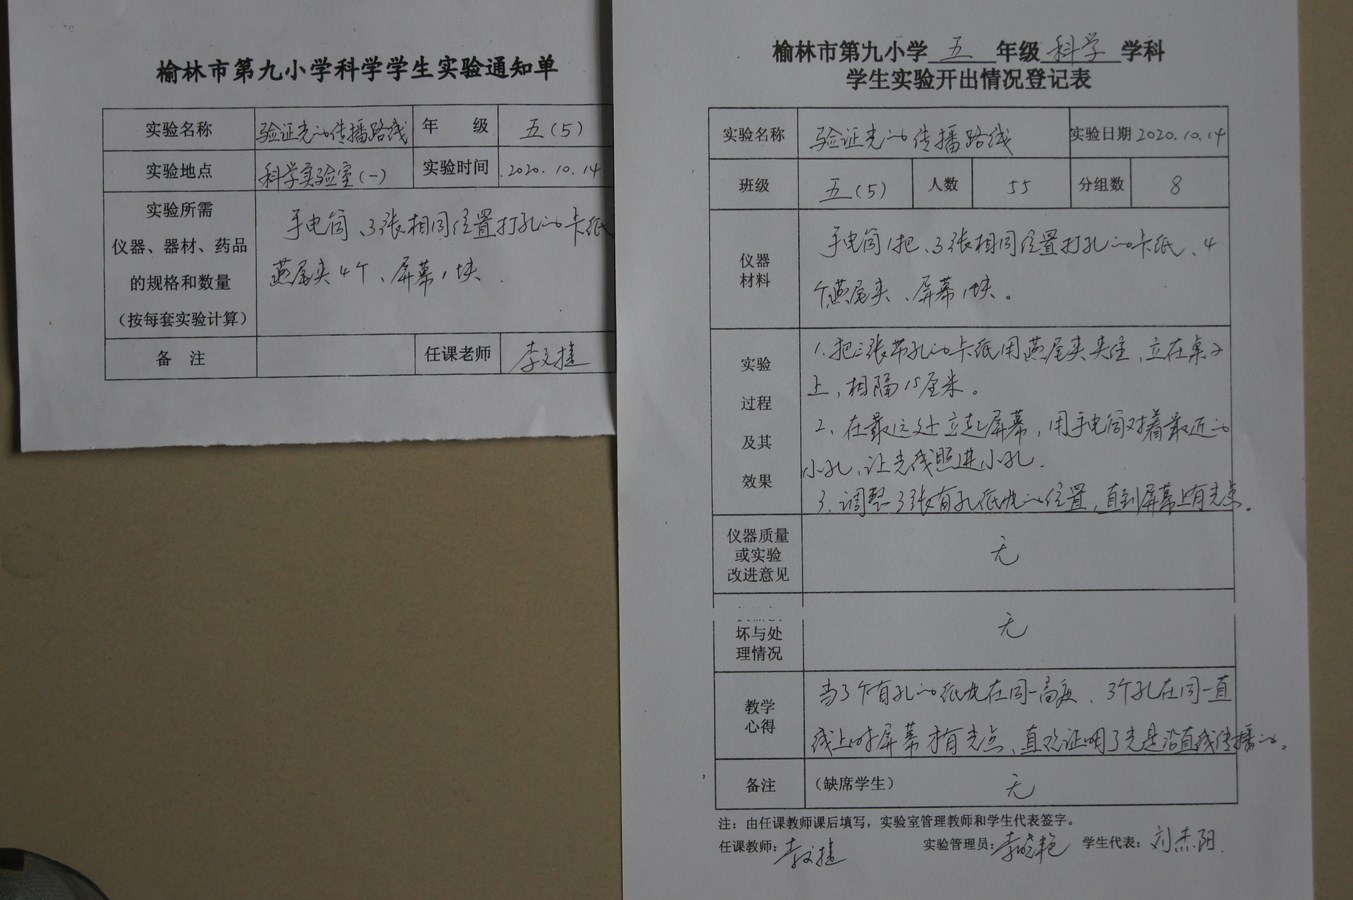 榆林市第九小学科学学生实验通知单
实验名称 验证光的传播路线 年 级 五(5)
实验地点 科学实验室(一) 实验时间 2020.10.14
实验所需
仪器、器材、药品
的规格和数量
(按每套实验计算)
手电筒、3张相同位置打孔的卡纸
燕尾夹4个、屏幕1块.
备 注 任课老师 李文捷
榆林市第九小学 五 年级 科学 学科
学生实验开出情况登记表
实验名称 验证光的传播路线 实验日期 2020.10.14
班级 五(5) 人数 55 分组数 8
仪器
材料
手电筒1把、3张相同位置打孔的卡纸、4
个燕尾夹、屏幕1块。
实验
过程
及其
效果
1.把三张带孔的卡纸用燕尾夹夹住,立在桌子
上,相隔15厘米。
2、在最远处立起屏幕,用手电筒对着最近的
小孔,让光线照进小孔.
3.调整3张有孔纸光的位置,直到屏幕上有光点。
仪器质量
或实验
改进意见
无
坏与处
理情况
无
教学
心得
当3个有孔的纸光在同一高度、3个孔在同一直
线上时屏幕才有光点,直观证明了光是沿直线传播的。
备注 (缺席学生) 无
注:由任课教师课后填写,实验室管理教师和学生代表签字。
任课教师: 李文捷 实验管理员: 李晓艳 学生代表: 刘杰阳